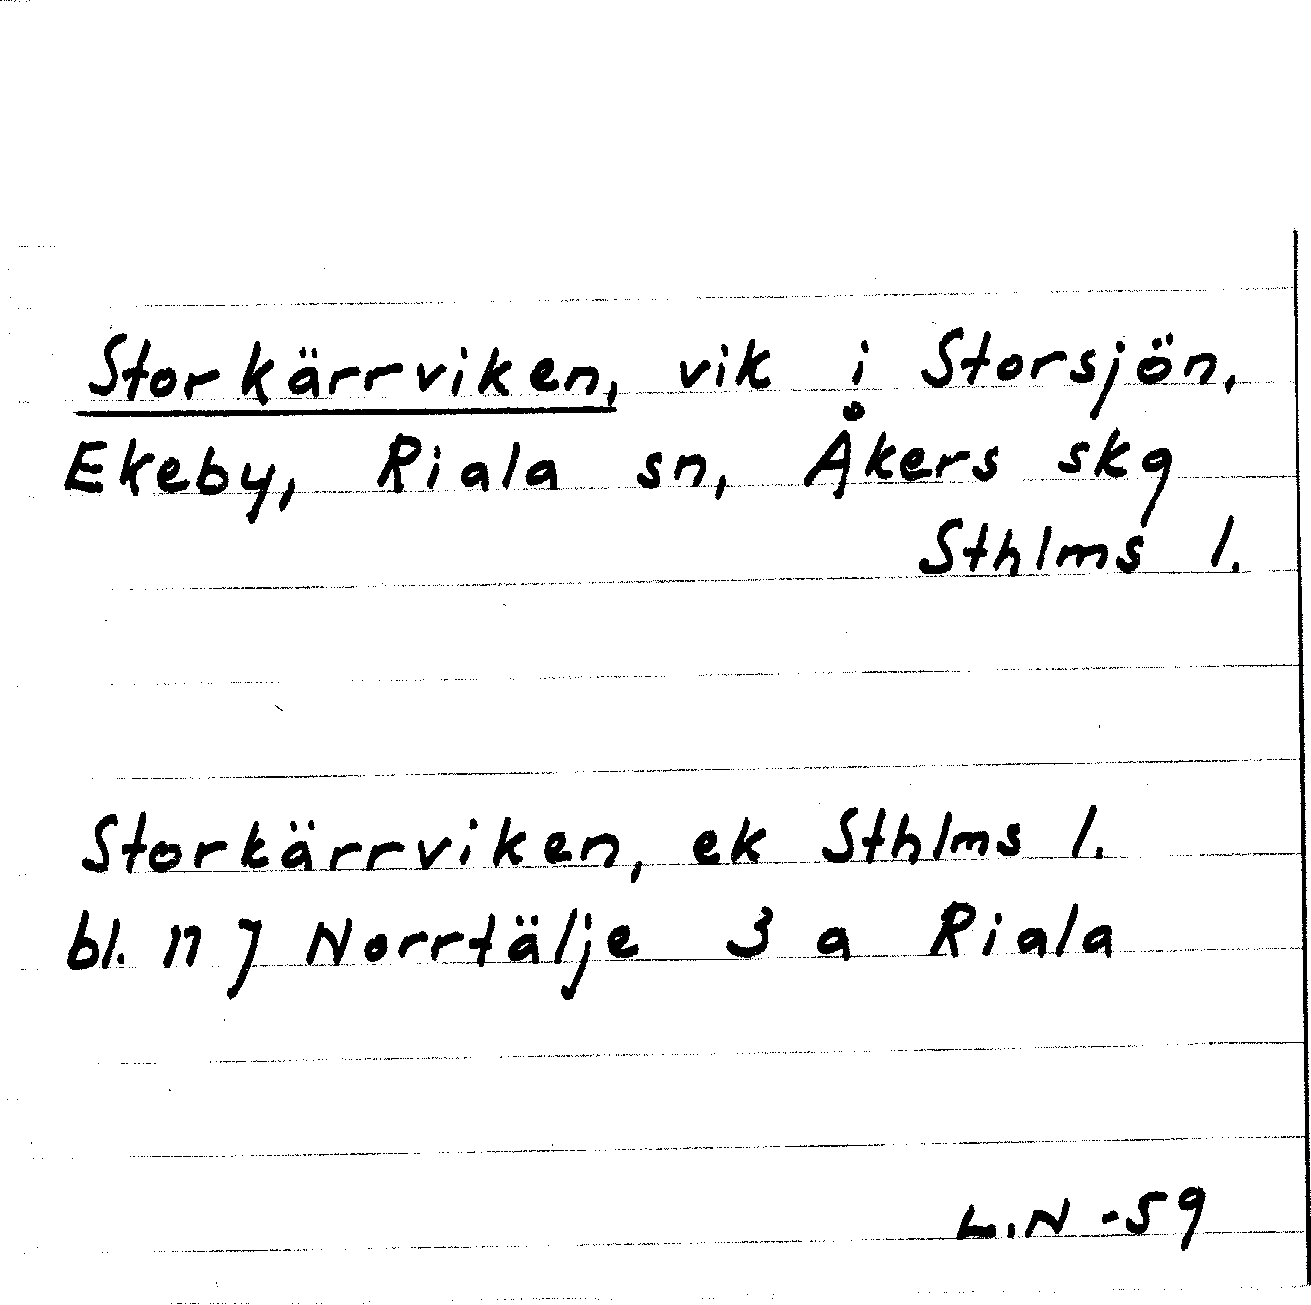 Storkärrviken, vik i Storsjön,
Ekeby, Riala sn, Åkers skg
Sthlms l.
Storkärrviken, ek Sthlms l.
bl. 117 Norrtälje 3 a Riala
L.N -59